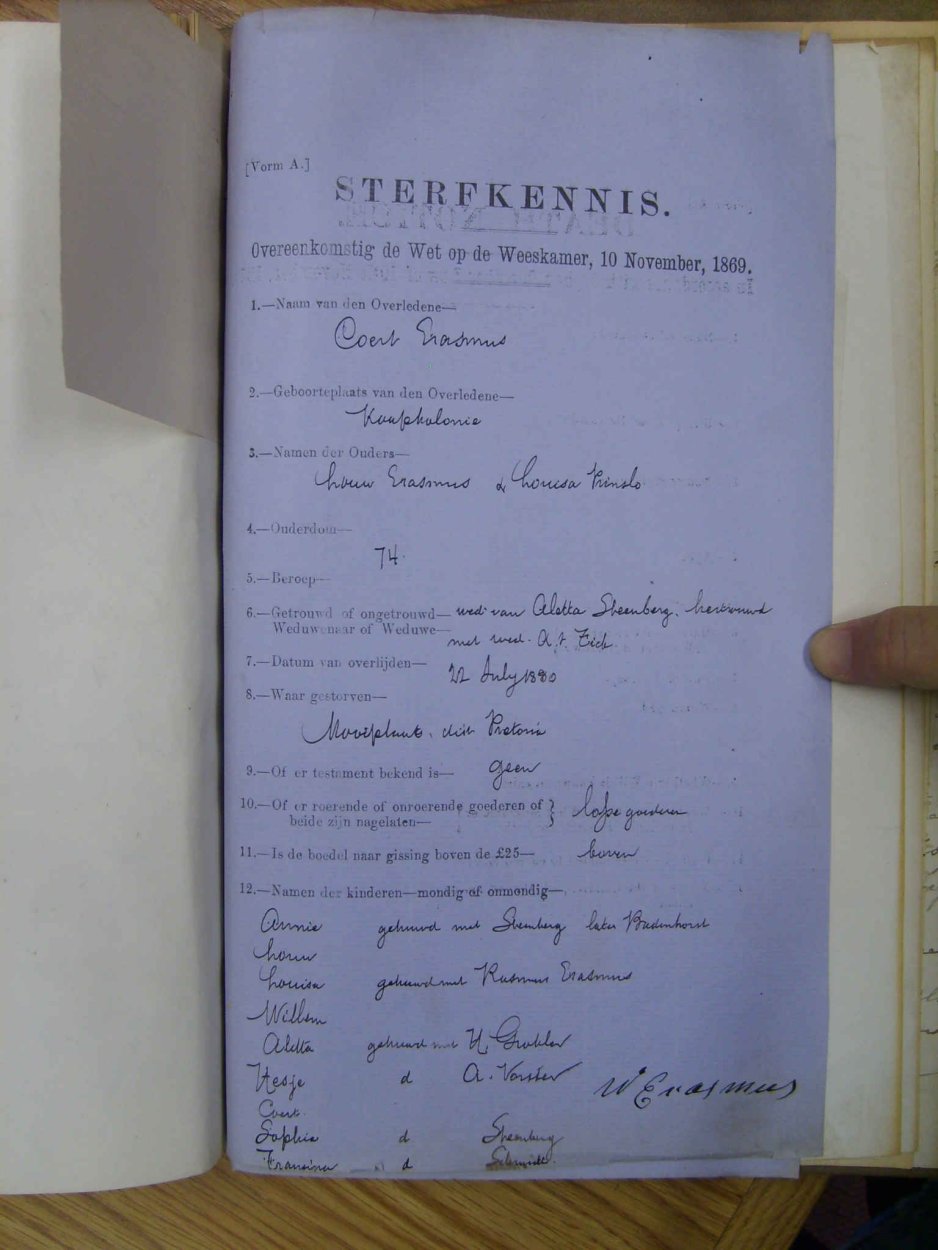 [Vorm A.]
STERFKENNIS.
Overeenkomstig de Wet op de Weeskamer, 10 November, 1869.
1.—Naam van den Overledene—
Coert Erasmus
2.—Geboorteplaats van den Overledene—
Kaapkolonie
3.—Namen der Ouders—
Louw Erasmus & Louisa Prinslo
4.—Ouderdom—
74.
5.—Beroep—
6.—Getrouwd of ongetrouwd— wed: van Aletta Steenberg, hertrouwd
Weduwenaar of Weduwe— met wed. A. J.
7.—Datum van overlijden— 22 July 1880
8.—Waar gestorven—
Mooiplaats, dist Pretoria
9.—Of er testament bekend is— geen
10.—Of er roerende of onroerende goederen of } losse goederen
beide zijn nagelaten—
11.—Is de boedel naar gissing boven de £25— boven
12.—Namen der kinderen—mondig of onmondig—
Annie gehuwd met Steenberg later Badenhorst
Louw
Louisa gehuwd met Rasmus Erasmus
Willem
Aletta gehuwd met H. Grobler
Hesje d A. Vorster
W Erasmus
Coert.
Sophia d Steenberg
Francina d Schmidt.